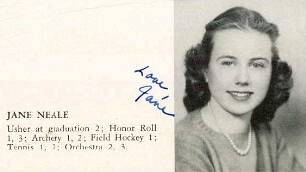 Love
Jane
JANE NEALE
Usher at graduation 2; Honor Roll
1, 3; Archery 1, 2; Field Hockey 1;
Tennis 1, 2; Orchestra 2, 3.